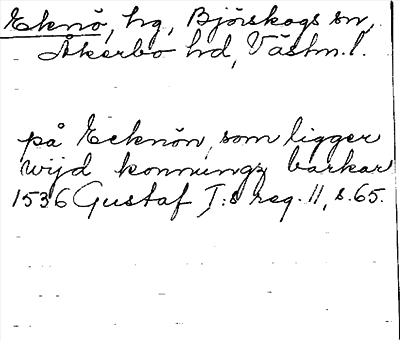 Eknö, hg, Björskogs sn,
Åkerbo hd, Västm.l.
på Ecknön, som ligger
wijd konnungz barkar
1536 Gustaf I:s reg. 11, s. 65.